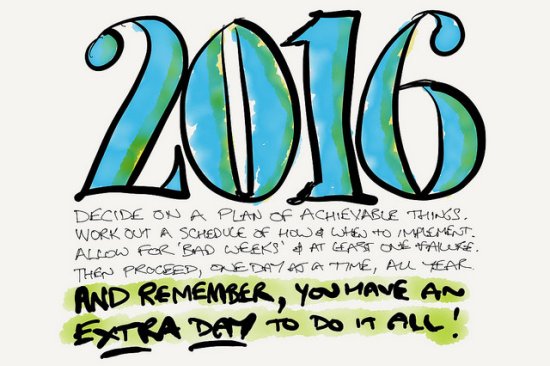 2016
DECIDE ON A PLAN OF ACHIEVABLE THINGS.
WORK OUT A SCHEDULE OF HOW & WHEN TO IMPLEMENT.
ALLOW FOR 'BAD WEEKS' & AT LEAST ONE FAILURE.
THEN PROCEED, ONE DAY AT A TIME, ALL YEAR.
AND REMEMBER, YOU HAVE AN
EXTRA DAY TO DO IT ALL!